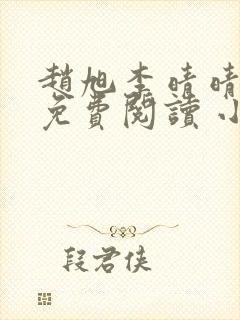 趙旭李晴晴
免費閱讀小
段君侠